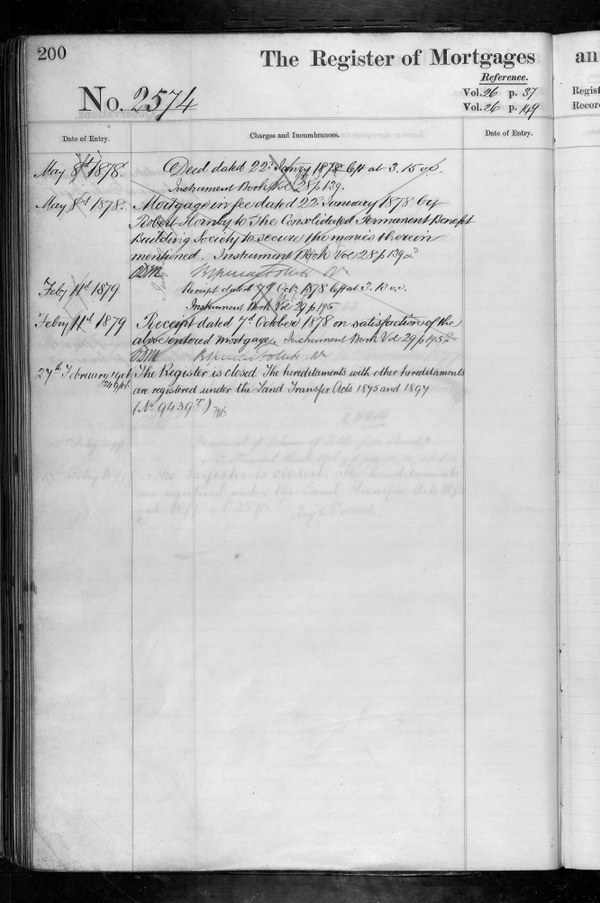 200
The Register of Mortgages
an
Reference.
No. 2574
Vol. 26 p. 37
Regist
Vol. 26 p. 149
Recor
Date of Entry.
Charges and Incumbrances.
Date of Entry.
May 8th 1878
Deed dated 22d Janry 1878 left at 3.15 o.c.
Instrument Book Vol 28 p 139.
May 8th 1878.
Mortgage in fee dated 22d January 1878 by
Robert Hornby to The Consolidated Permanent Benefit
Building Society to secure the monies therein
mentioned. Instrument Book Vol 28 p 139
Feby 11th 1879
Receipt dated 7th Oct 1878 left at 3. o.c.
Instrument Book Vol 29 p 195
Febry 11th 1879
Receipt dated 7th October 1878 on satisfaction of the
above entered mortgage. Instrument Book Vol 29 p 195
27th February
The Register is closed. The hereditaments with other hereditaments
are registered under the Land Transfer Acts 1875 and 1897
(No 9439)